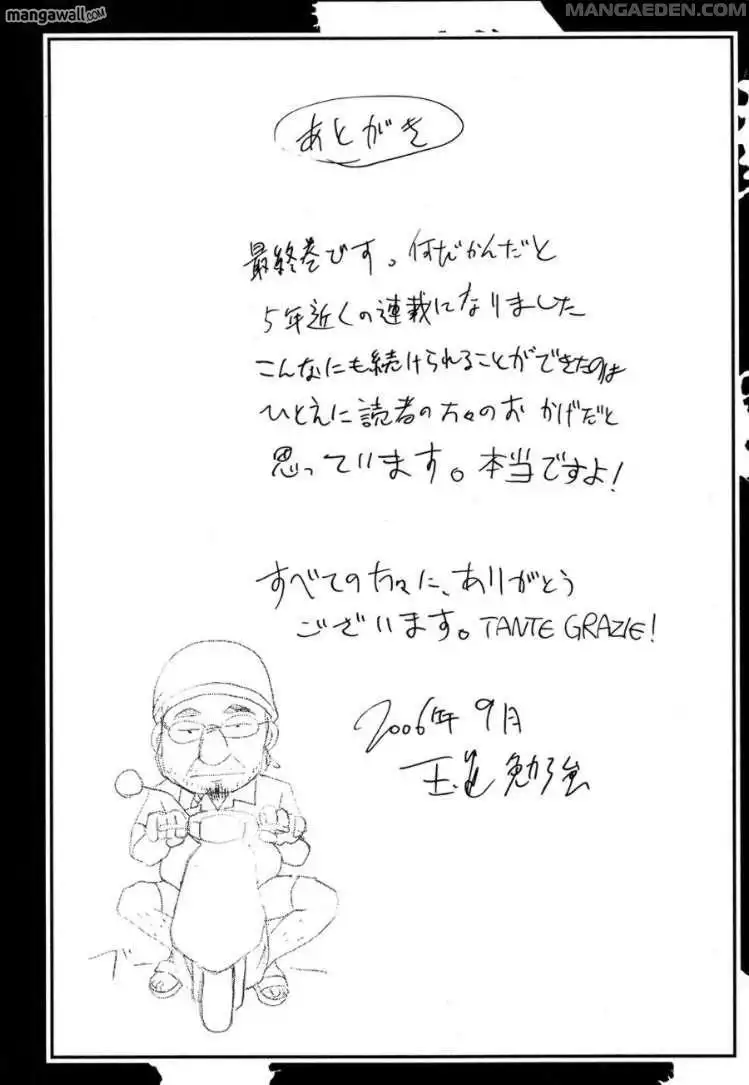 mangawall.com
MANGAEDEN.COM
あとがき
最終巻です。何だかんだと
5年近くの連載になりました
こんなにも続けられることができたのは
ひとえに読者の方々のおかげだと
思っています。本当ですよ！
すべての方々に、ありがとう
ございます。TANTE GRAZIE!
2006年9月
玉置勉強
ブー